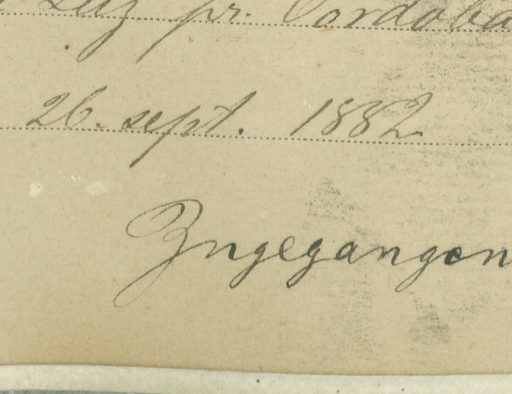 pr. Cordoba
26. sept. 1882
Zugegangen